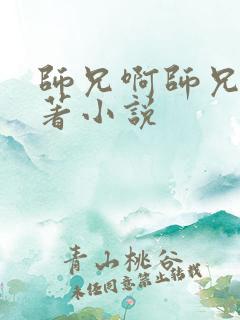 師兄啊師兄
著小說
青山桃谷
未经同意禁止转载